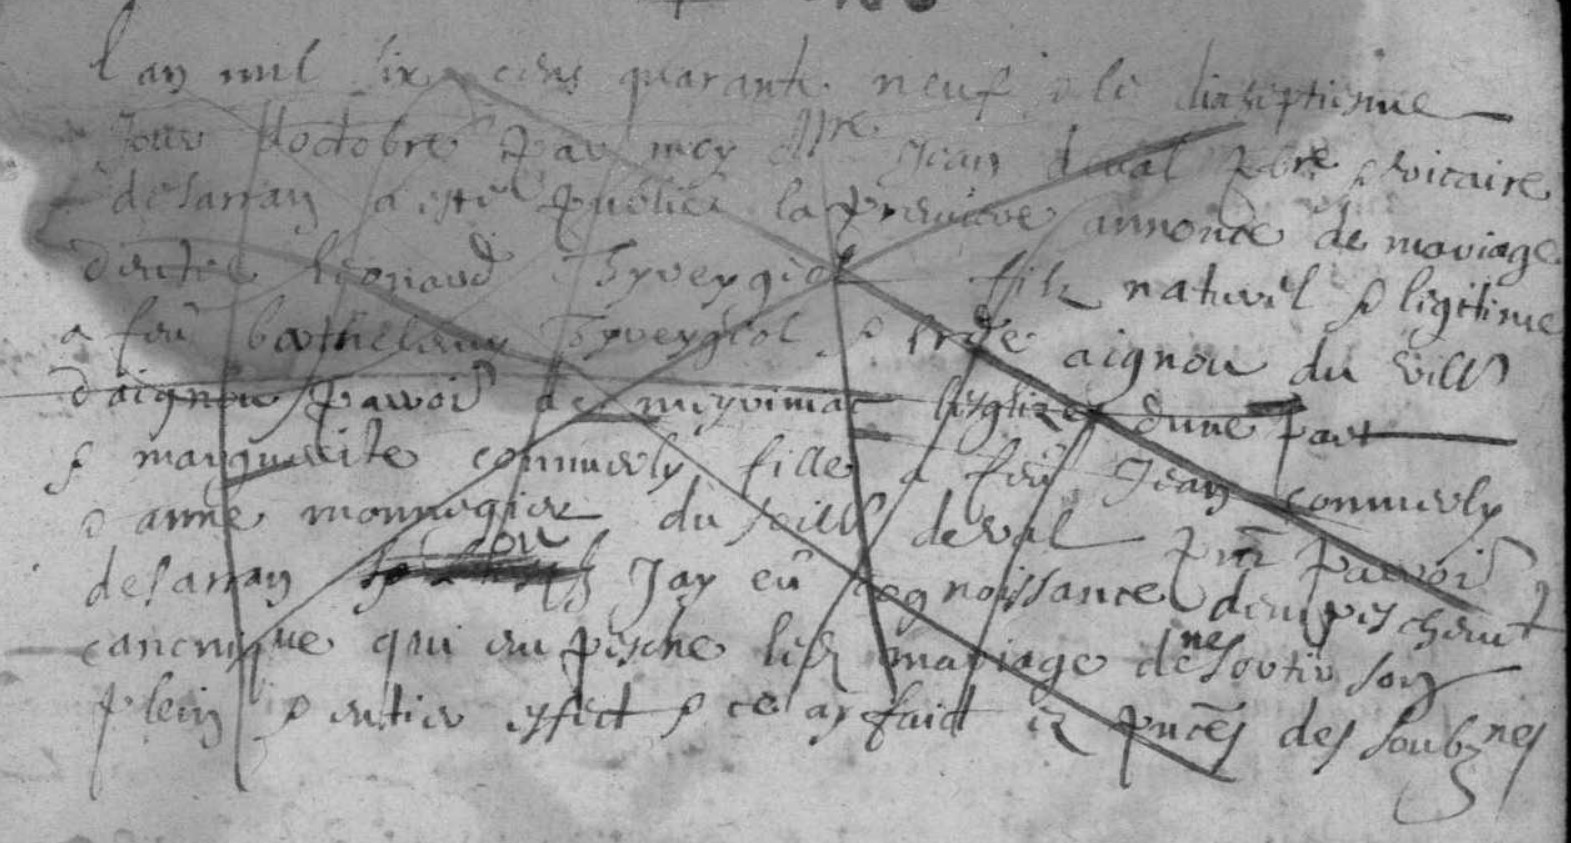 l an mil six cens quarante neuf & le dixseptiesme
Jour d octobre par moy Mre Jean deval pbre & vicaire
de sarran a esté publié la premiere annonce de mariage
d entre leonard Tyveyriol filz naturel & legitime
a feu barthelemy Tyveyriol & aignou du vill
d aignou parroi de meyvimac lesglize d une part
& marguerite conmerly fille a feu Jean conmerly
& anne monnegier du vill deval pnt parroi
de sarran ou Jay eu cognoissance d empeschent
canonique qui empesche led mariage de ne sortir son
plein & entier effect & ce ay faict ez pnces des soubznes